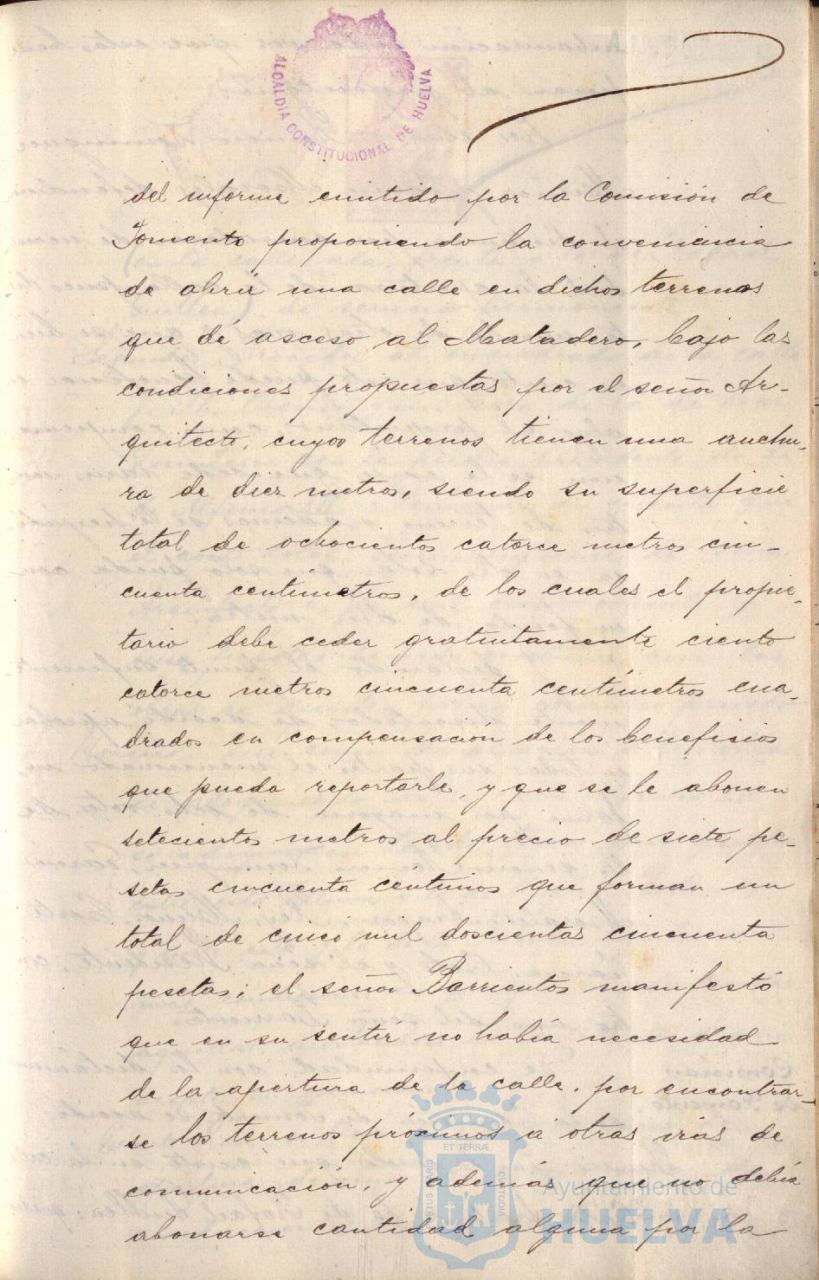 ALCALDÍA CONSTITUCIONAL DE HUELVA
del informe emitido por la Comisión de
Fomento proponiendo la conveniencia
de abrir una calle en dichos terrenos
que dé asceso al Matadero, bajo las
condiciones propuestas por el señor Ar-
quitecto, cuyos terrenos tienen una anchu-
ra de diez metros, siendo su superficie
total de ochocientos catorce metros cin-
cuenta centímetros, de los cuales el propie-
tario debe ceder gratuitamente ciento
catorce metros cincuenta centímetros cua-
drados en compensación de los benefisios
que pueda reportarle, y que se le abonen
setecientos metros al precio de siete pe-
setas cincuenta céntimos que forman un
total de cinco mil doscientas cincuenta
pesetas; el señor Barrientos manifestó
que en su sentir no había necesidad
de la apertura de la calle, por encontrar-
se los terrenos próximos á otras vías de
comunicación, y además que no debía
abonarse cantidad alguna por la
Ayuntamiento de
HUELVA
ET TERRÆ
PORTUS MARIS
CUSTODIA